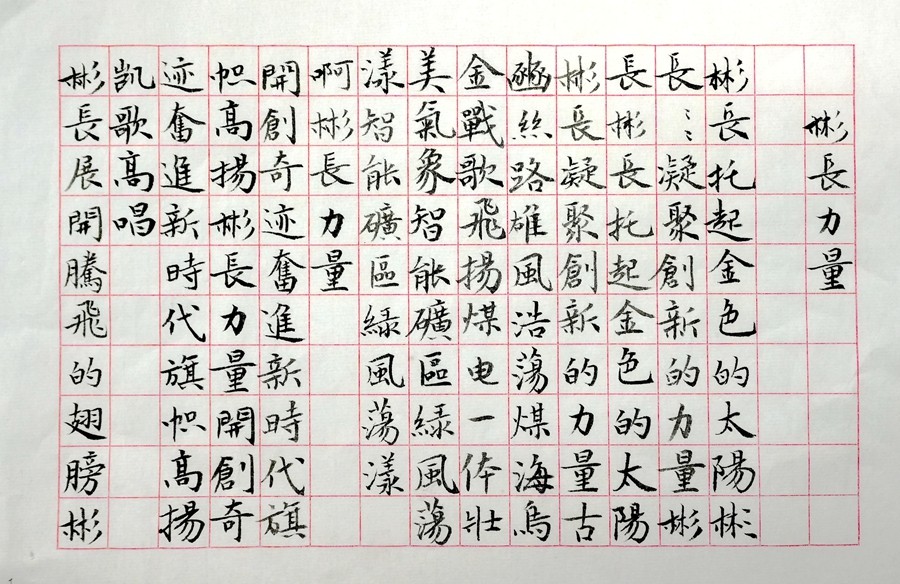 彬長力量
彬長托起金色的太陽彬
長〻凝聚創新的力量彬
長彬長托起金色的太陽
彬長凝聚創新的力量古
豳絲路雄風浩蕩煤海烏
金戰歌飛揚煤电一体壯
美氣象智能礦區綠風蕩
漾智能礦區綠風蕩漾
啊彬長力量
開創奇迹奮進新時代旗
帜高揚彬長力量開創奇
迹奮進新時代旗帜高揚
凯歌高唱
彬長展開騰飛的翅膀彬